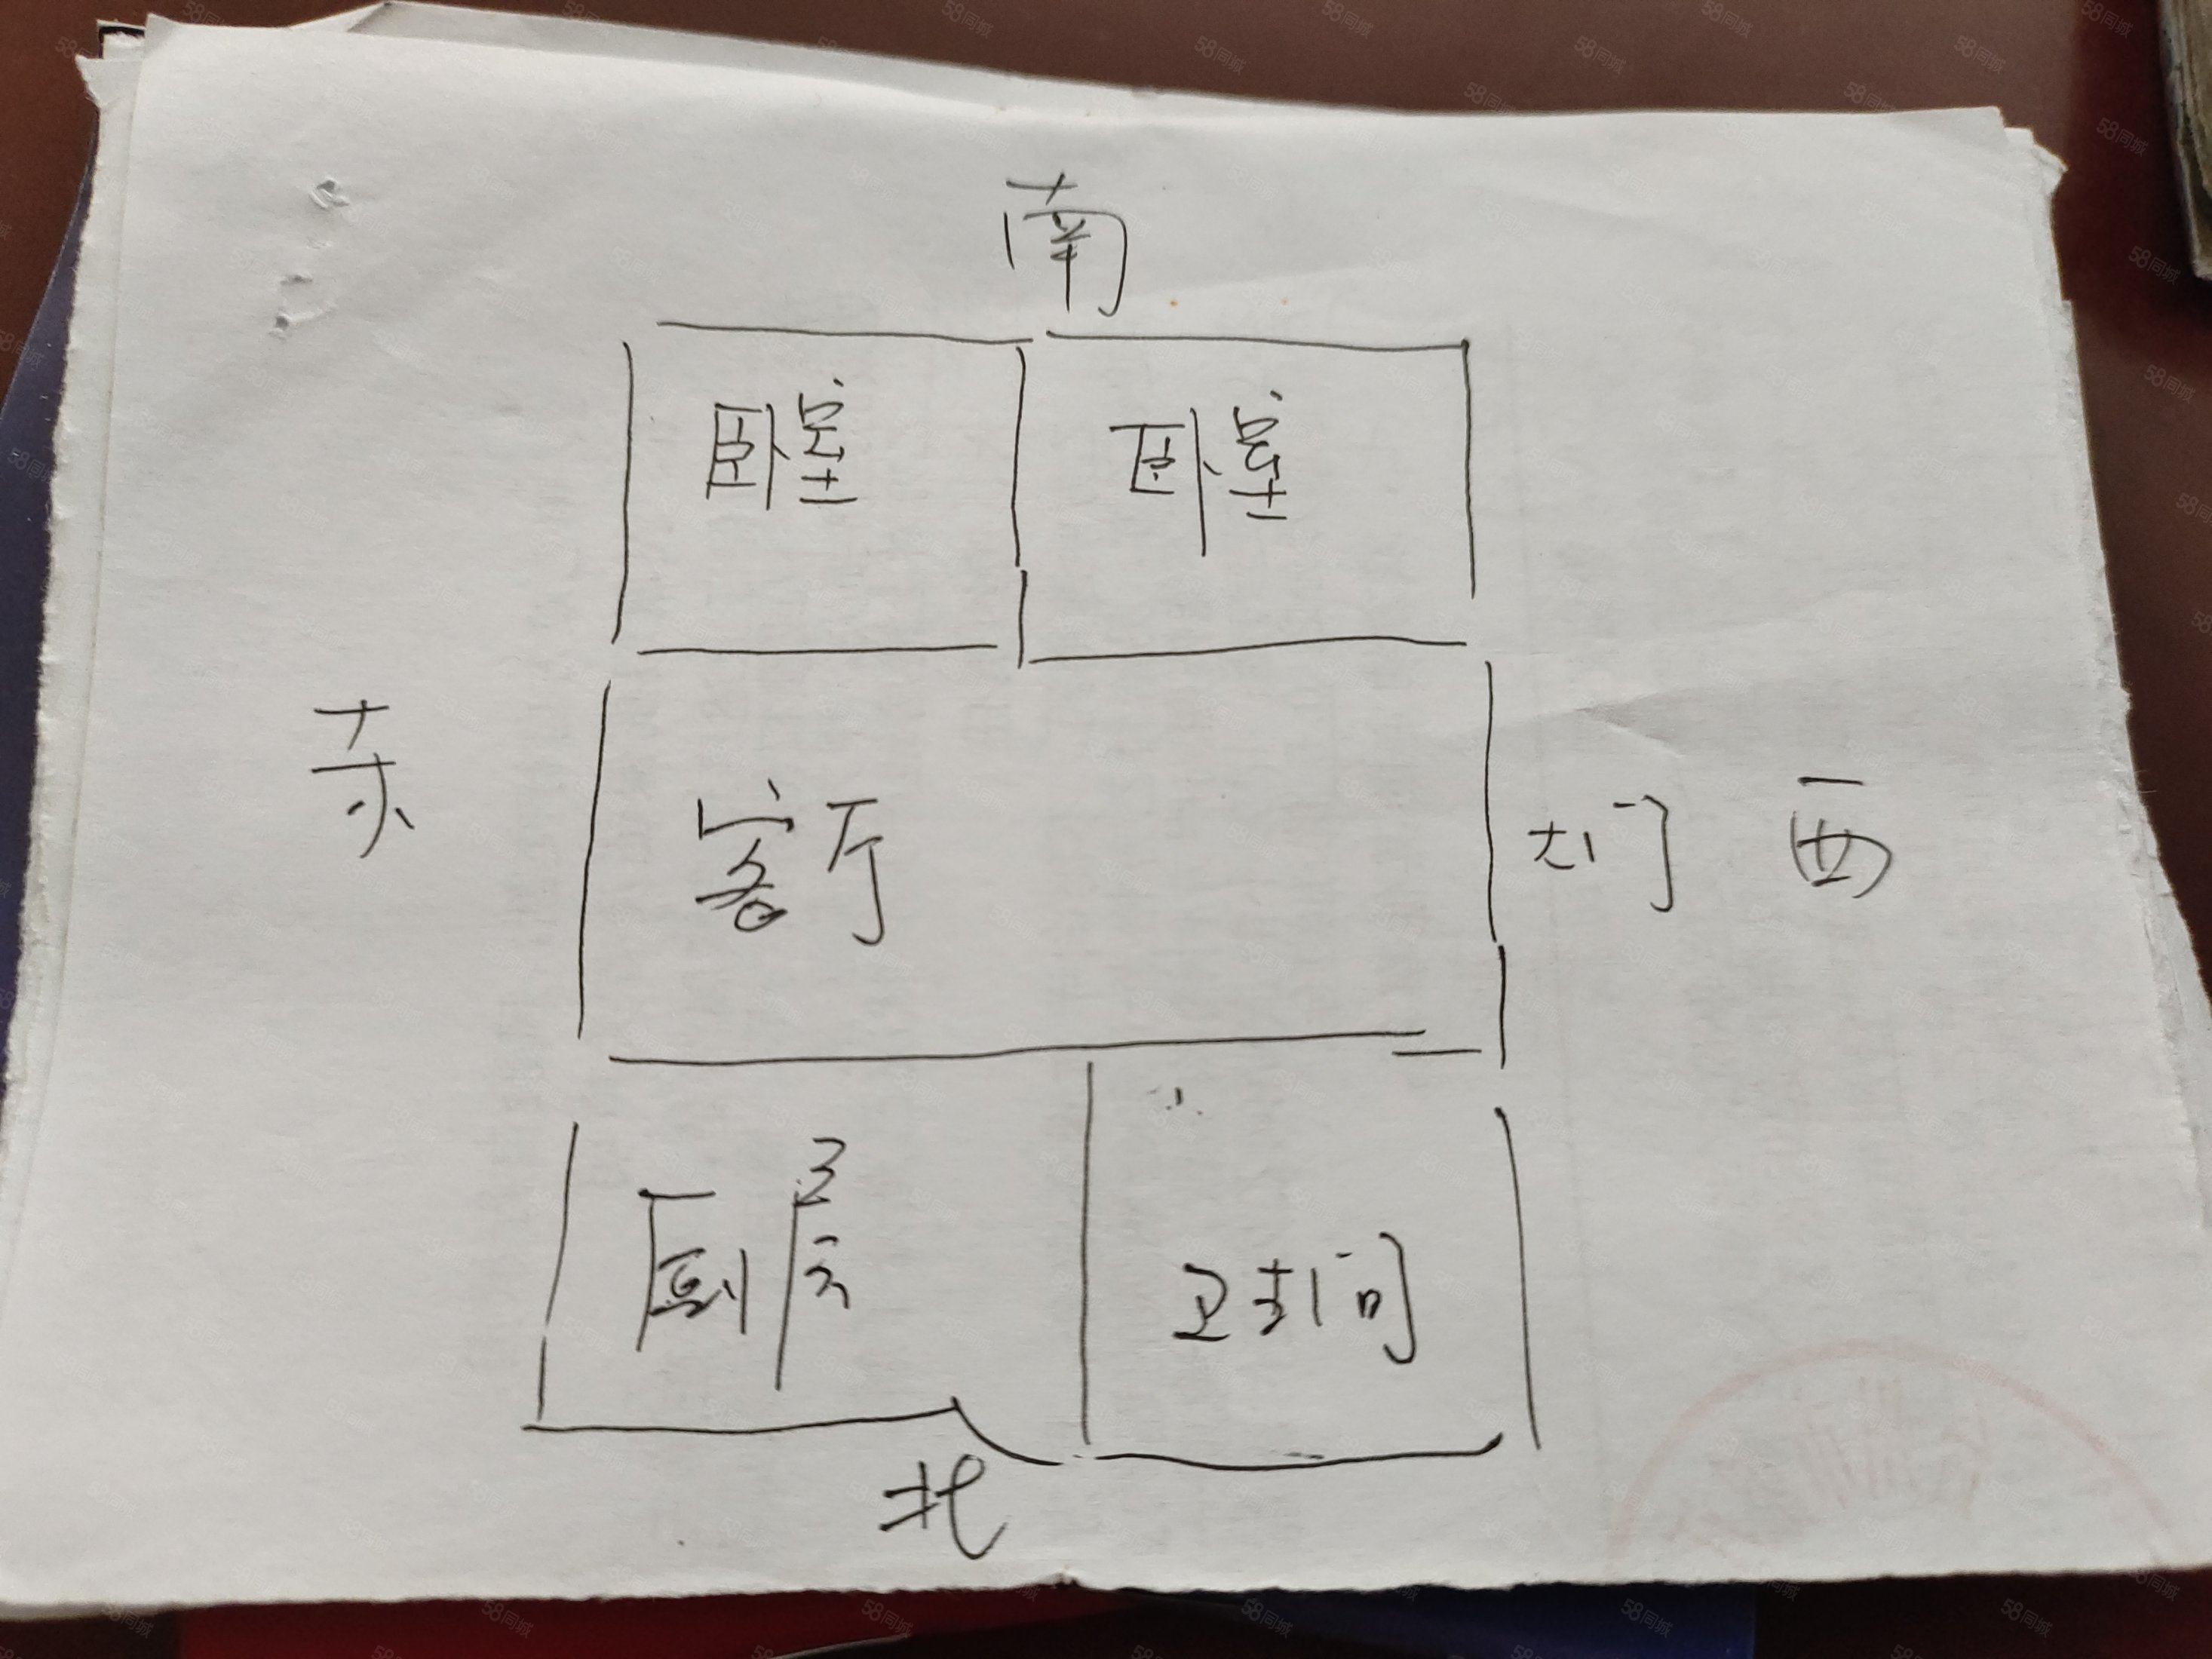 南
卧室 卧室
东
客厅
大门 西
厨房 卫生间
北
58同城